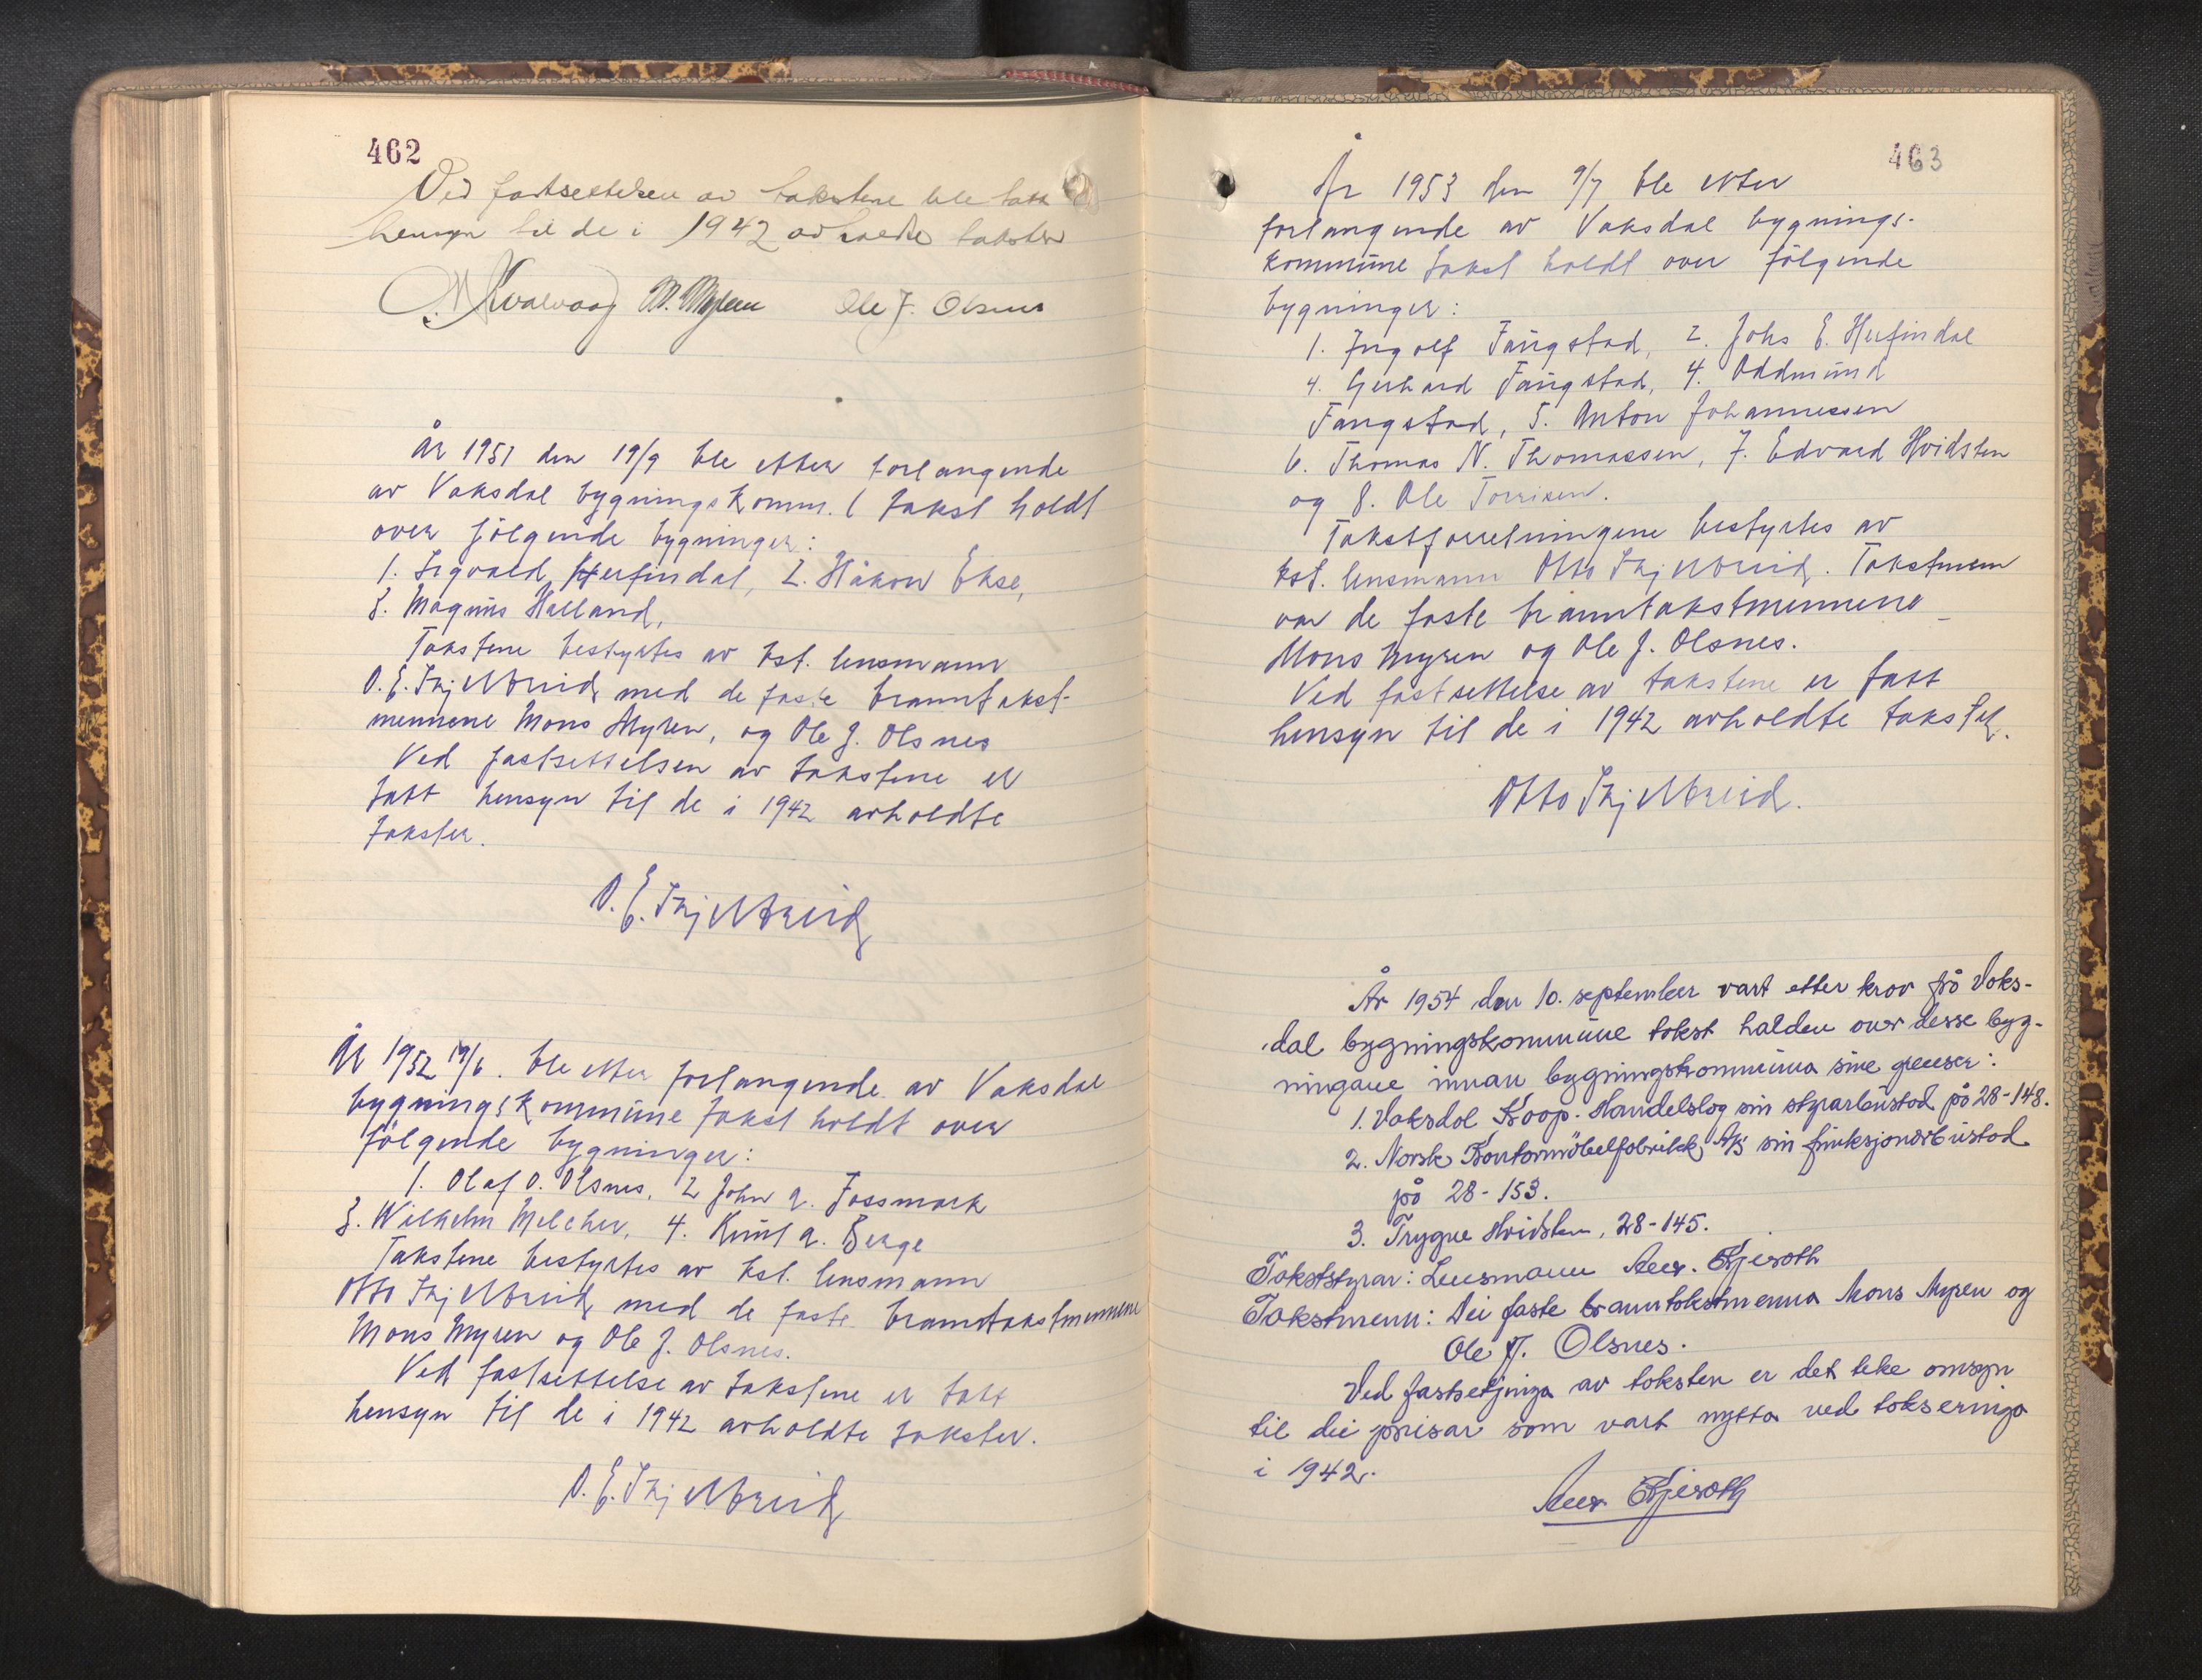 462
Ved fastsettelsen av takstene ble tatt
hensyn til de i 1942 avholdte takster
M. Myren Ole J. Olsnes
År 1951 den 19/9 ble etter forlangende
av Vaksdal bygningskomm. takst holdt
over følgende bygninger:
1. Sigvald Herfindal, 2. Håkon Ekse,
3. Magnus Halland,
Takstene bestyrtes av kst. lensmann
O. E. Skjelbreid med de faste branntakst-
mennene Mons Myren, og Ole J. Olsnes
Ved fastsettelsen av takstene er
tatt hensyn til de i 1942 avholdte
takster.
O. E. Skjelbreid
År 1952 19/6. ble etter forlangende av Vaksdal
bygningskommune takst holdt over
følgende bygninger:
1. Olaf O. Olsnes, 2 John A. Fossmark
3. Wilhelm Melcher, 4. Knut A. Berge
Takstene bestyrtes av kst. lensmann
Otto Skjelbreid med de faste branntakstmennene
Mons Myren og Ole J. Olsnes.
Ved fastsettelse av takstene er tatt
hensyn til de i 1942 avholdte takster.
O. E. Skjelbreid
463
År 1953 den 9/7 ble etter
forlangende av Vaksdal bygnings-
kommune takst holdt over følgende
bygninger:
1. Ingolf Fangstad, 2. Johs E. Herfindal
4. Gerhard Fangstad, 4. Oddmund
Fangstad, 5. Anton Johannessen
6. Thomas N. Thomassen, 7. Edvard Hvidsten
og 8. Ole Torrisen.
Takstforretningene bestyrtes av
kst. lensmann Otto Skjelbreid. Takstmenn
var de faste branntakstmennene
Mons Myren og Ole J. Olsnes.
Ved fastsettelse av takstene er tatt
hensyn til de i 1942 avholdte takster.
Otto Skjelbreid.
År 1954 den 10. september vart etter krav frå Vaks-
dal bygningskommune takst halden over desse byg-
ningane innan bygningskommuna sine grenser:
1. Vaksdal Koop. Handelslag sin styrarbustad på 28-148.
2. Norsk Kontormöbelfabrikk A/S sin funksjonærbustad
på 28-153.
3. Trygve Hvidsten, 28-145.
Takststyrar: Lensmann Kjeroth
Takstmenn: Dei faste branntakstmenna Mons Myren og
Ole J. Olsnes.
Ved fastsetjinga av taksten er det teke omsyn
til dei prisar som vart nytta ved takseringa
i 1942.
Kjeroth